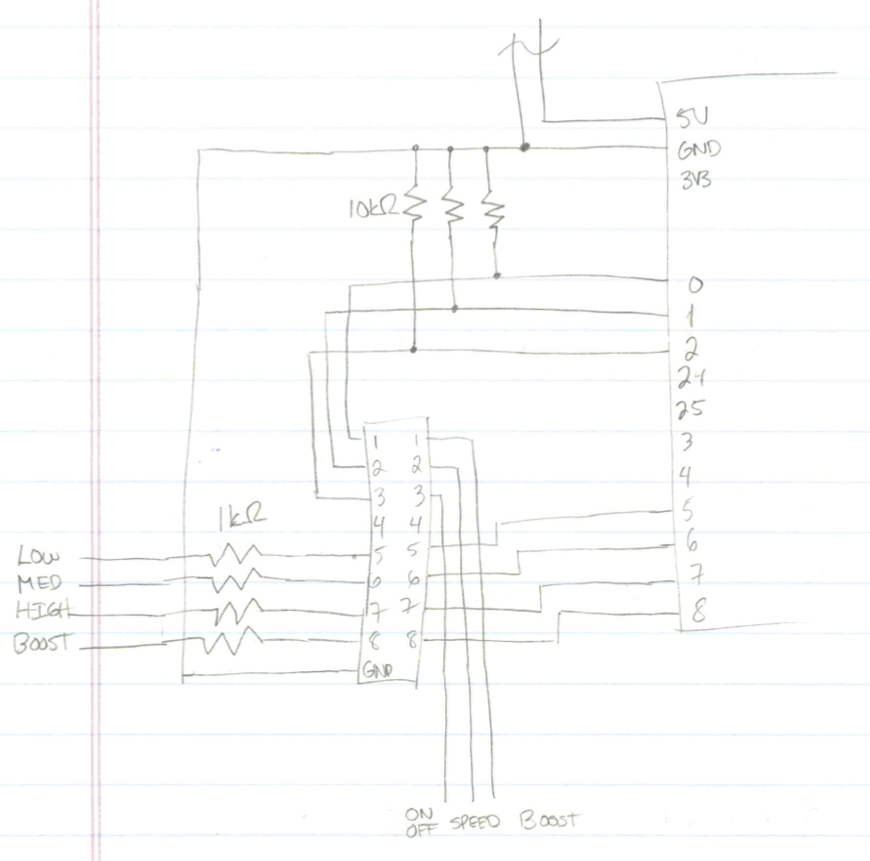 5V
GND
3V3
10kΩ
0
1
2
24
25
3
4
5
6
7
8
1 1
2 2
3 3
4 4
5 5
6 6
7 7
8 8
GND
1kΩ
LOW
MED
HIGH
BOOST
ON
OFF SPEED BOOST